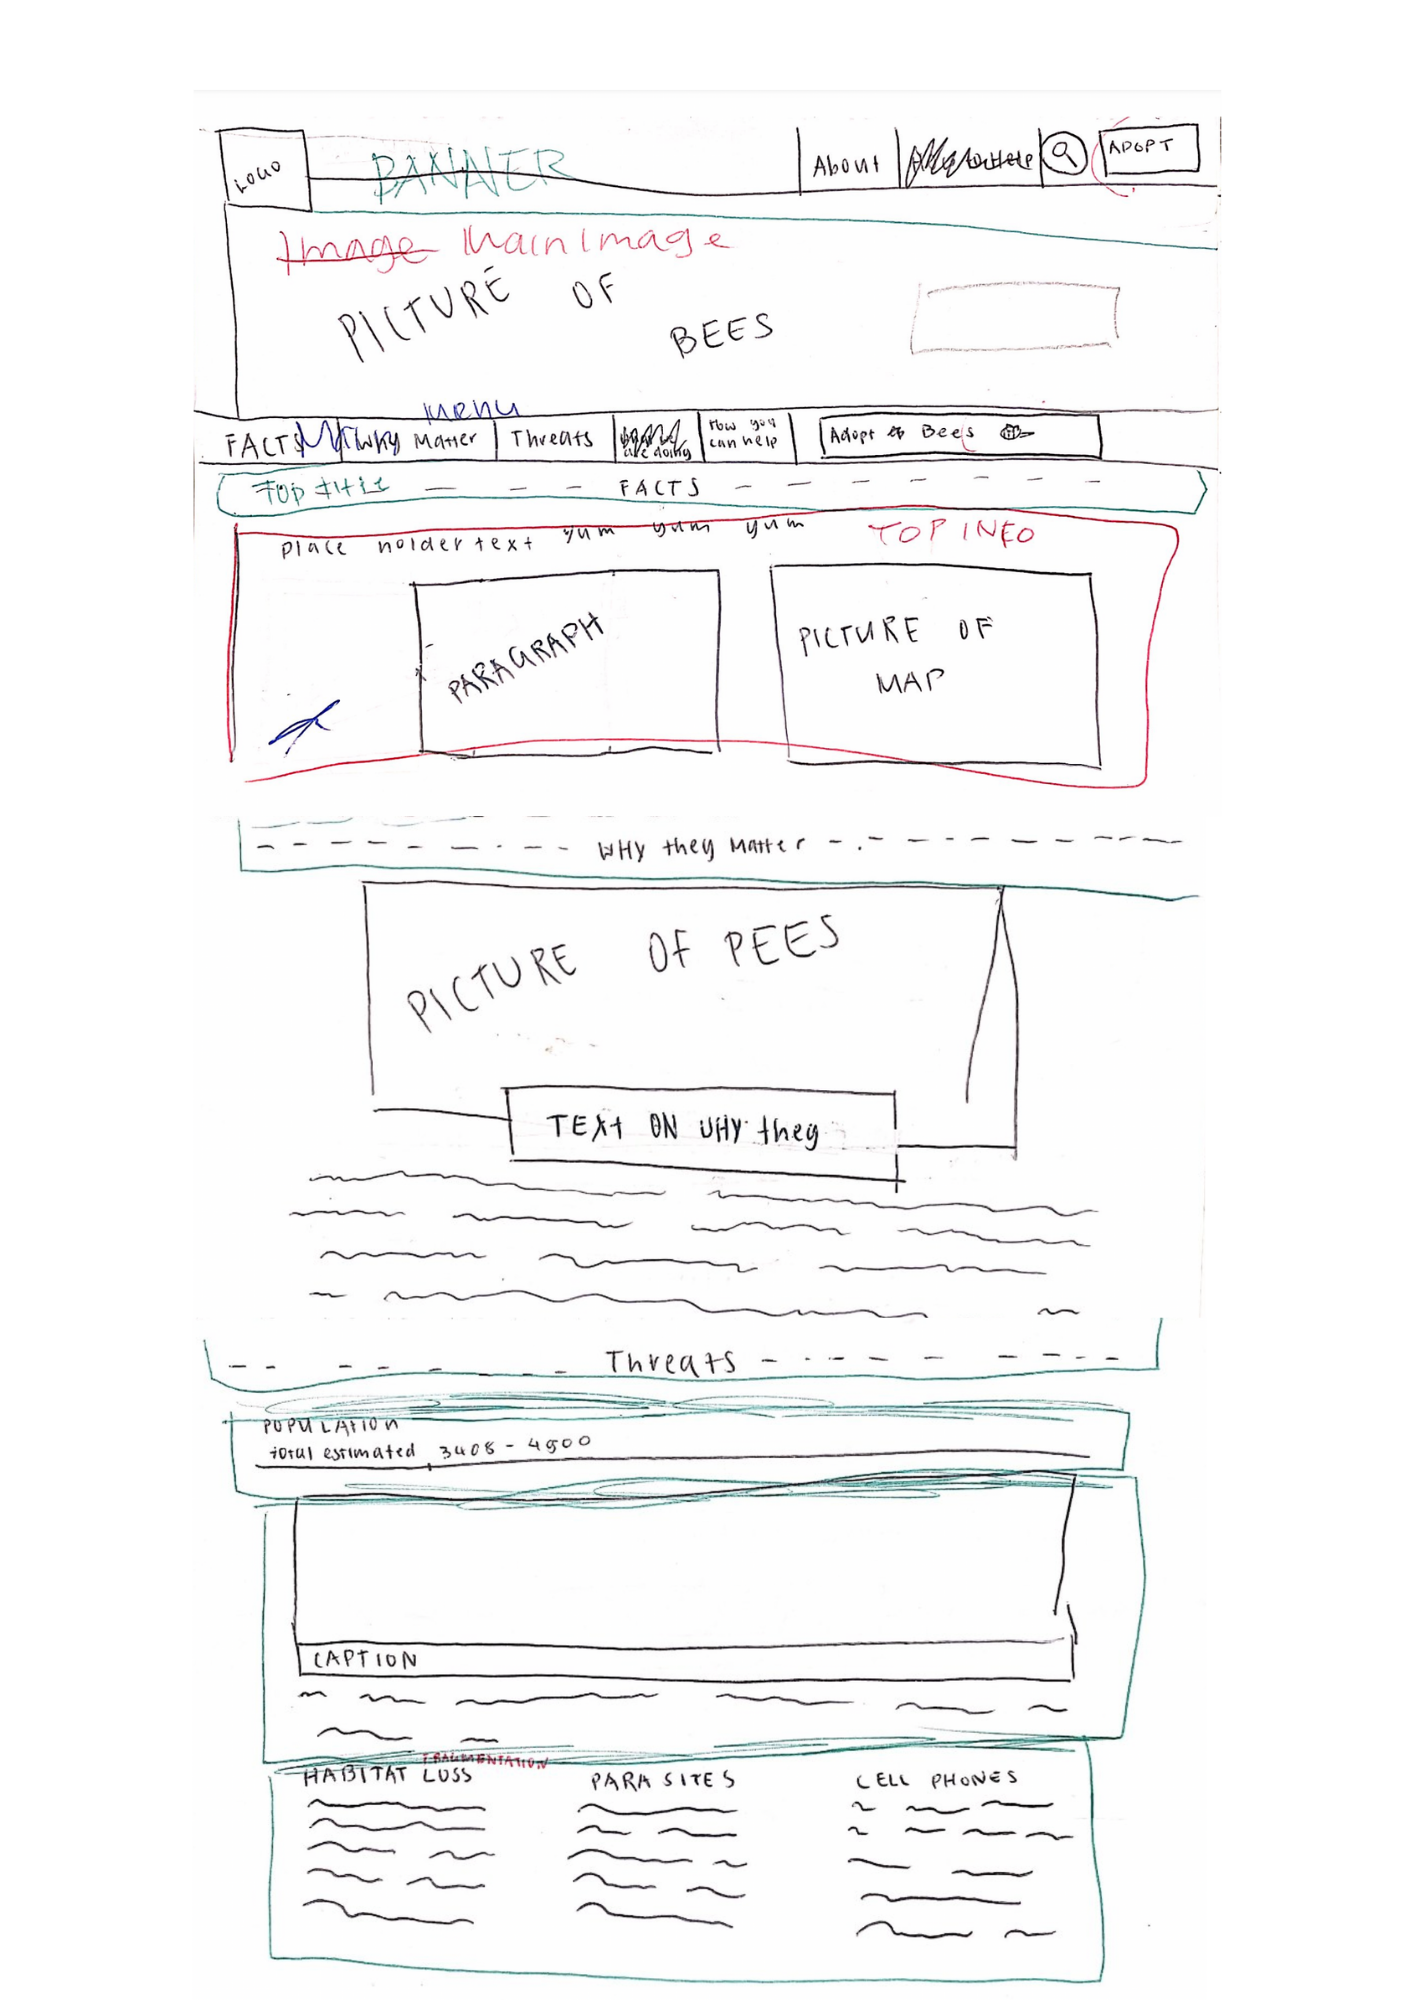 LOGO
BANNER
About
ADOPT
Image Main Image
PICTURE OF
BEES
MENU
FACTS
Why Matter
Threats
are doing
How you
can help
Adopt Bees
FACTS
Place holder text yum yum yum
TOP INFO
PARAGRAPH
PICTURE OF
MAP
WHY they Matter
PICTURE OF PEES
TEXt ON WHY they
Threats
POPULATION
total estimated 3408 - 4500
CAPTION
FRAGMENTATION
HABITAT LOSS
PARASITES
CELL PHONES